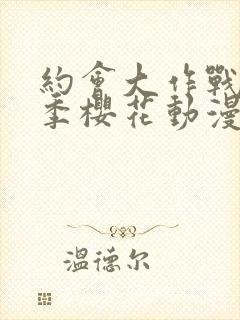 約會大作戰
季櫻花動漫
溫德尔